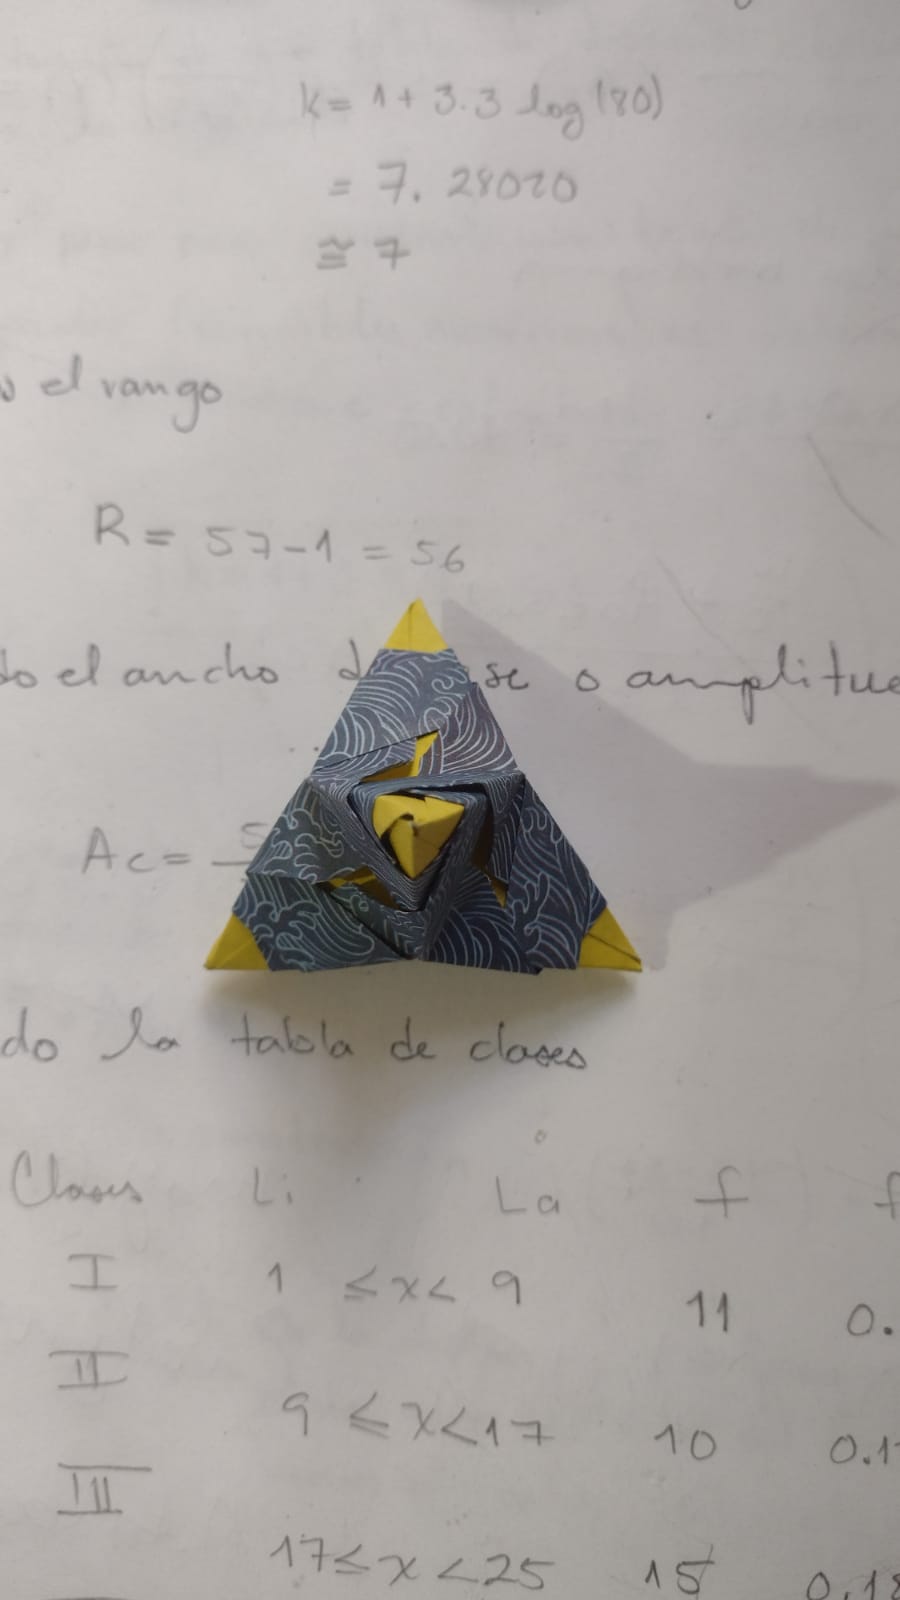 k= 1+ 3.3 log(80)
= 7. 28020
≅ 7
el rango
R = 57-1 = 56
do el ancho d se o amplitud
Ac=
do la tabla de clases
Clases Li La f f
I 1 ≤x< 9 11 0.
II 9 ≤x<17 10 0.1
III 17≤x<25 15 0.18